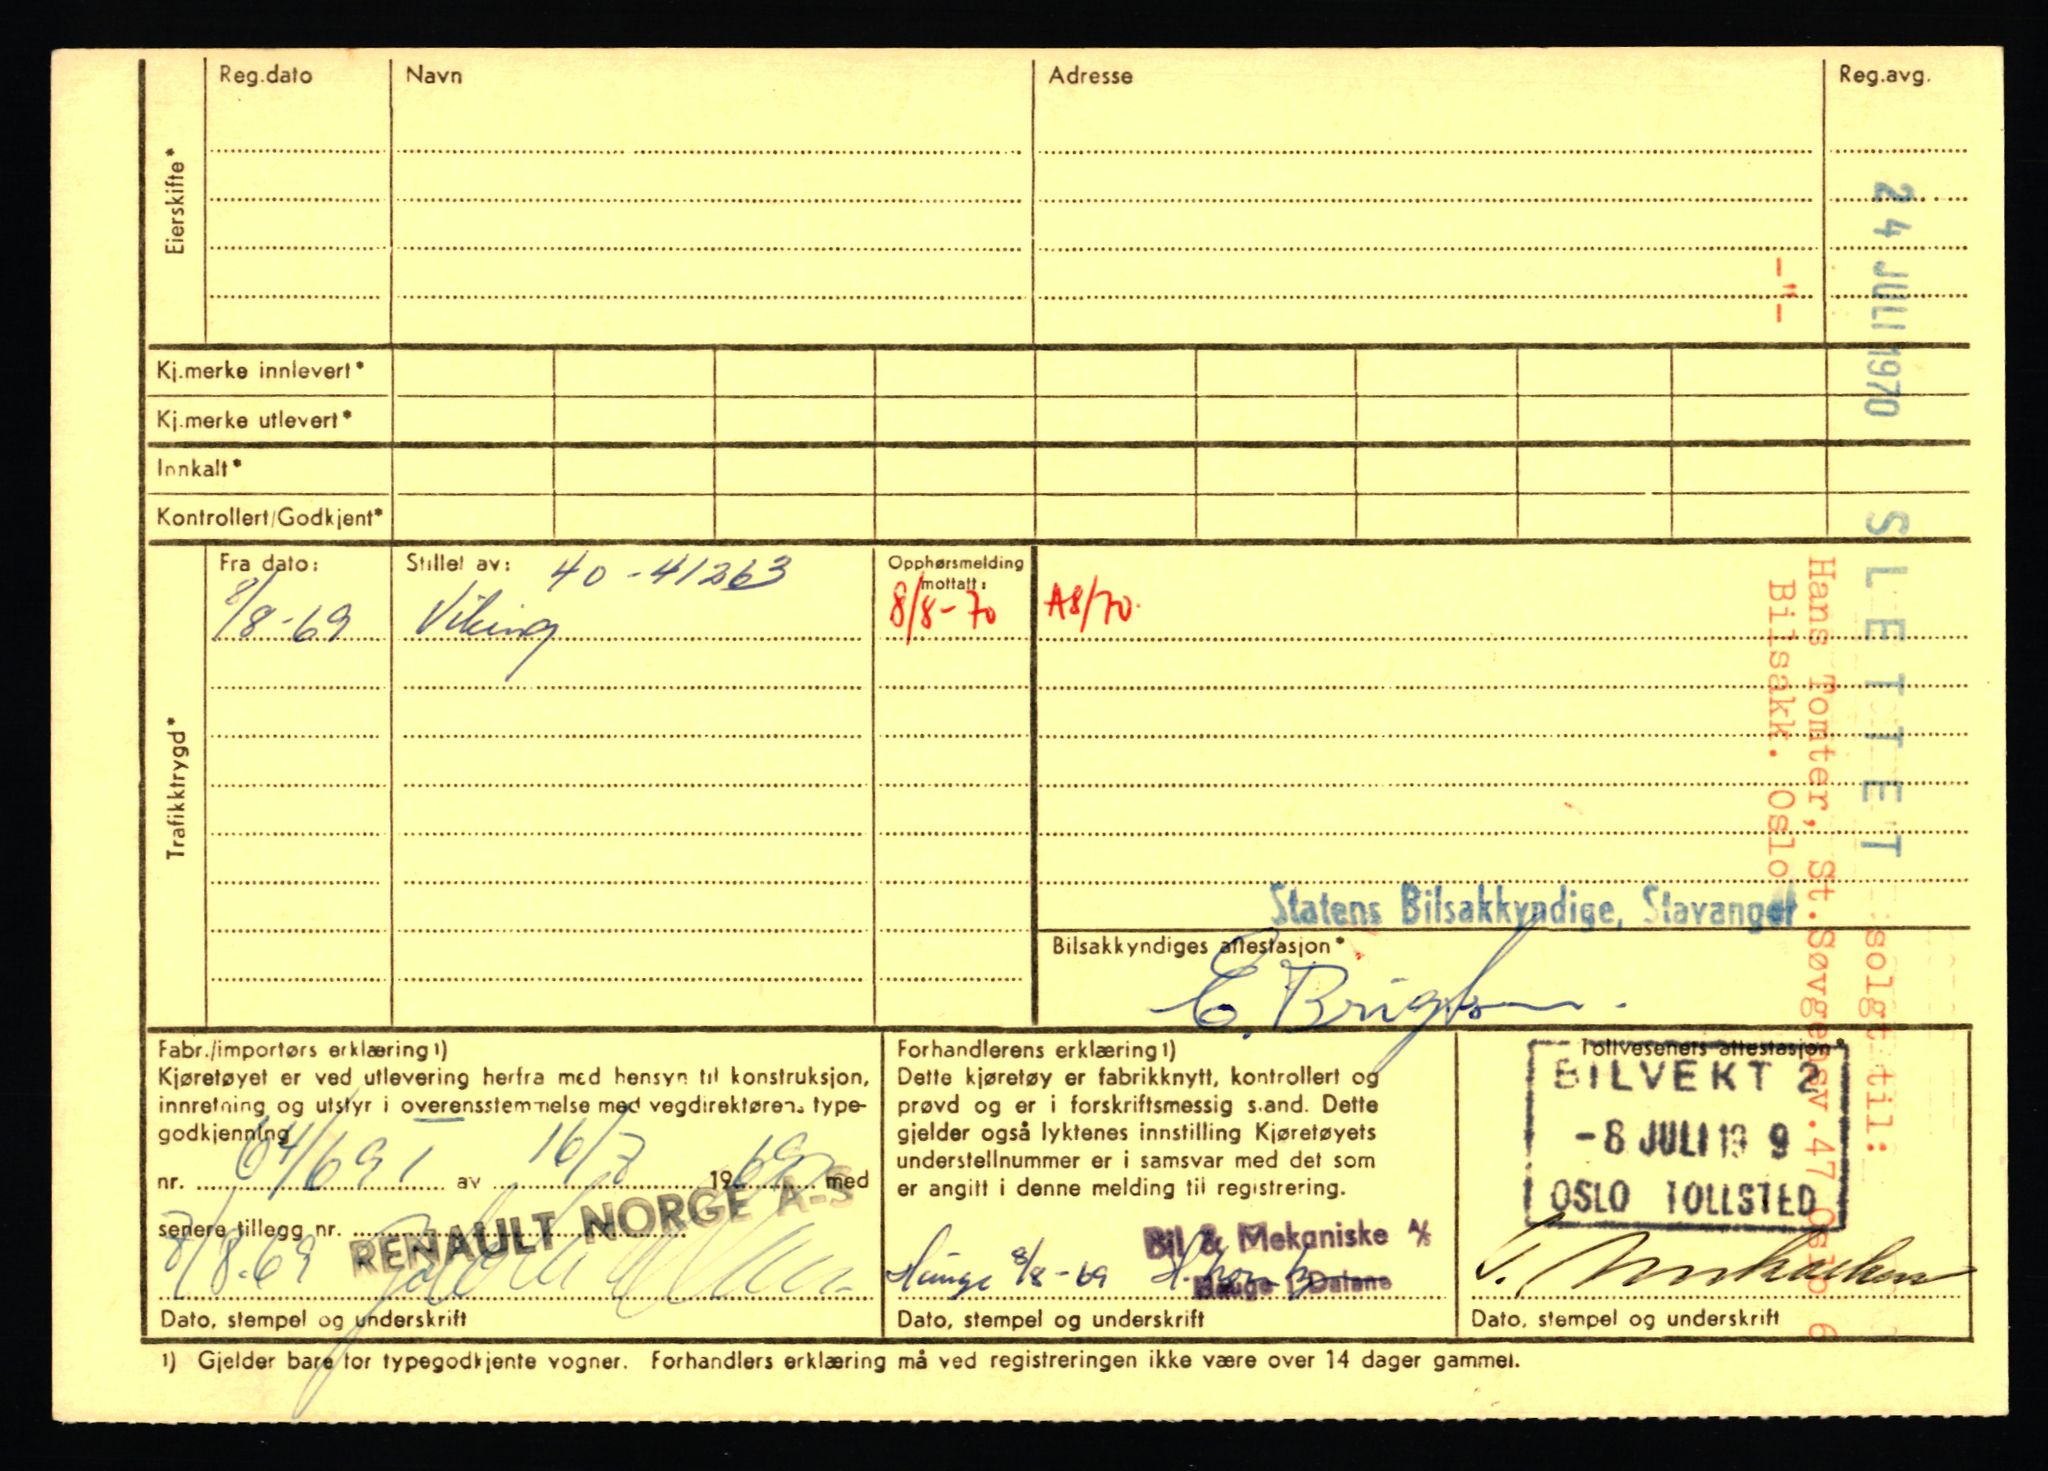 Reg.dato Navn Adresse Reg.avg.
Eierskifte*
Kj.merke innlevert*
Kj.merke utlevert*
Innkalt*
Kontrollert/Godkjent*
Trafikktrygd*
Fra dato: Stillet av: 40-41263 Opphørsmelding mottatt:
8/8-69 Viking 8/8-70 A8/70.
24 JULI 1970 SLETTET
solgt til:
Hans Tomter, St.
Oslo 6
Bilsakk. Oslo
-"-
Statens Bilsakkyndige, Stavanger
Bilsakkyndiges attestasjon*
Fabr./importørs erklæring 1)
Kjøretøyet er ved utlevering herfra med hensyn til konstruksjon,
innretning og utstyr i overensstemmelse med vegdirektørens type-
godkjenning
nr. 64/69 1 av 16/7 1969 med
senere tillegg nr.
RENAULT NORGE A-S
8/8-69
Dato, stempel og underskrift
Forhandlerens erklæring 1)
Dette kjøretøy er fabrikknytt, kontrollert og
prøvd og er i forskriftsmessig stand. Dette
gjelder også lyktenes innstilling Kjøretøyets
understellnummer er i samsvar med det som
er angitt i denne melding til registrering.
Bil & Mekaniske A/S
Hauge 8/8-69
Hauge i Dalane
Dato, stempel og underskrift
Tollvesenets attestasjon*
BILVEKT 2
-8 JULI 19 9
OSLO TOLLSTED
Dato, stempel og underskrift
1) Gjelder bare for typegodkjente vogner. Forhandlers erklæring må ved registreringen ikke være over 14 dager gammel.